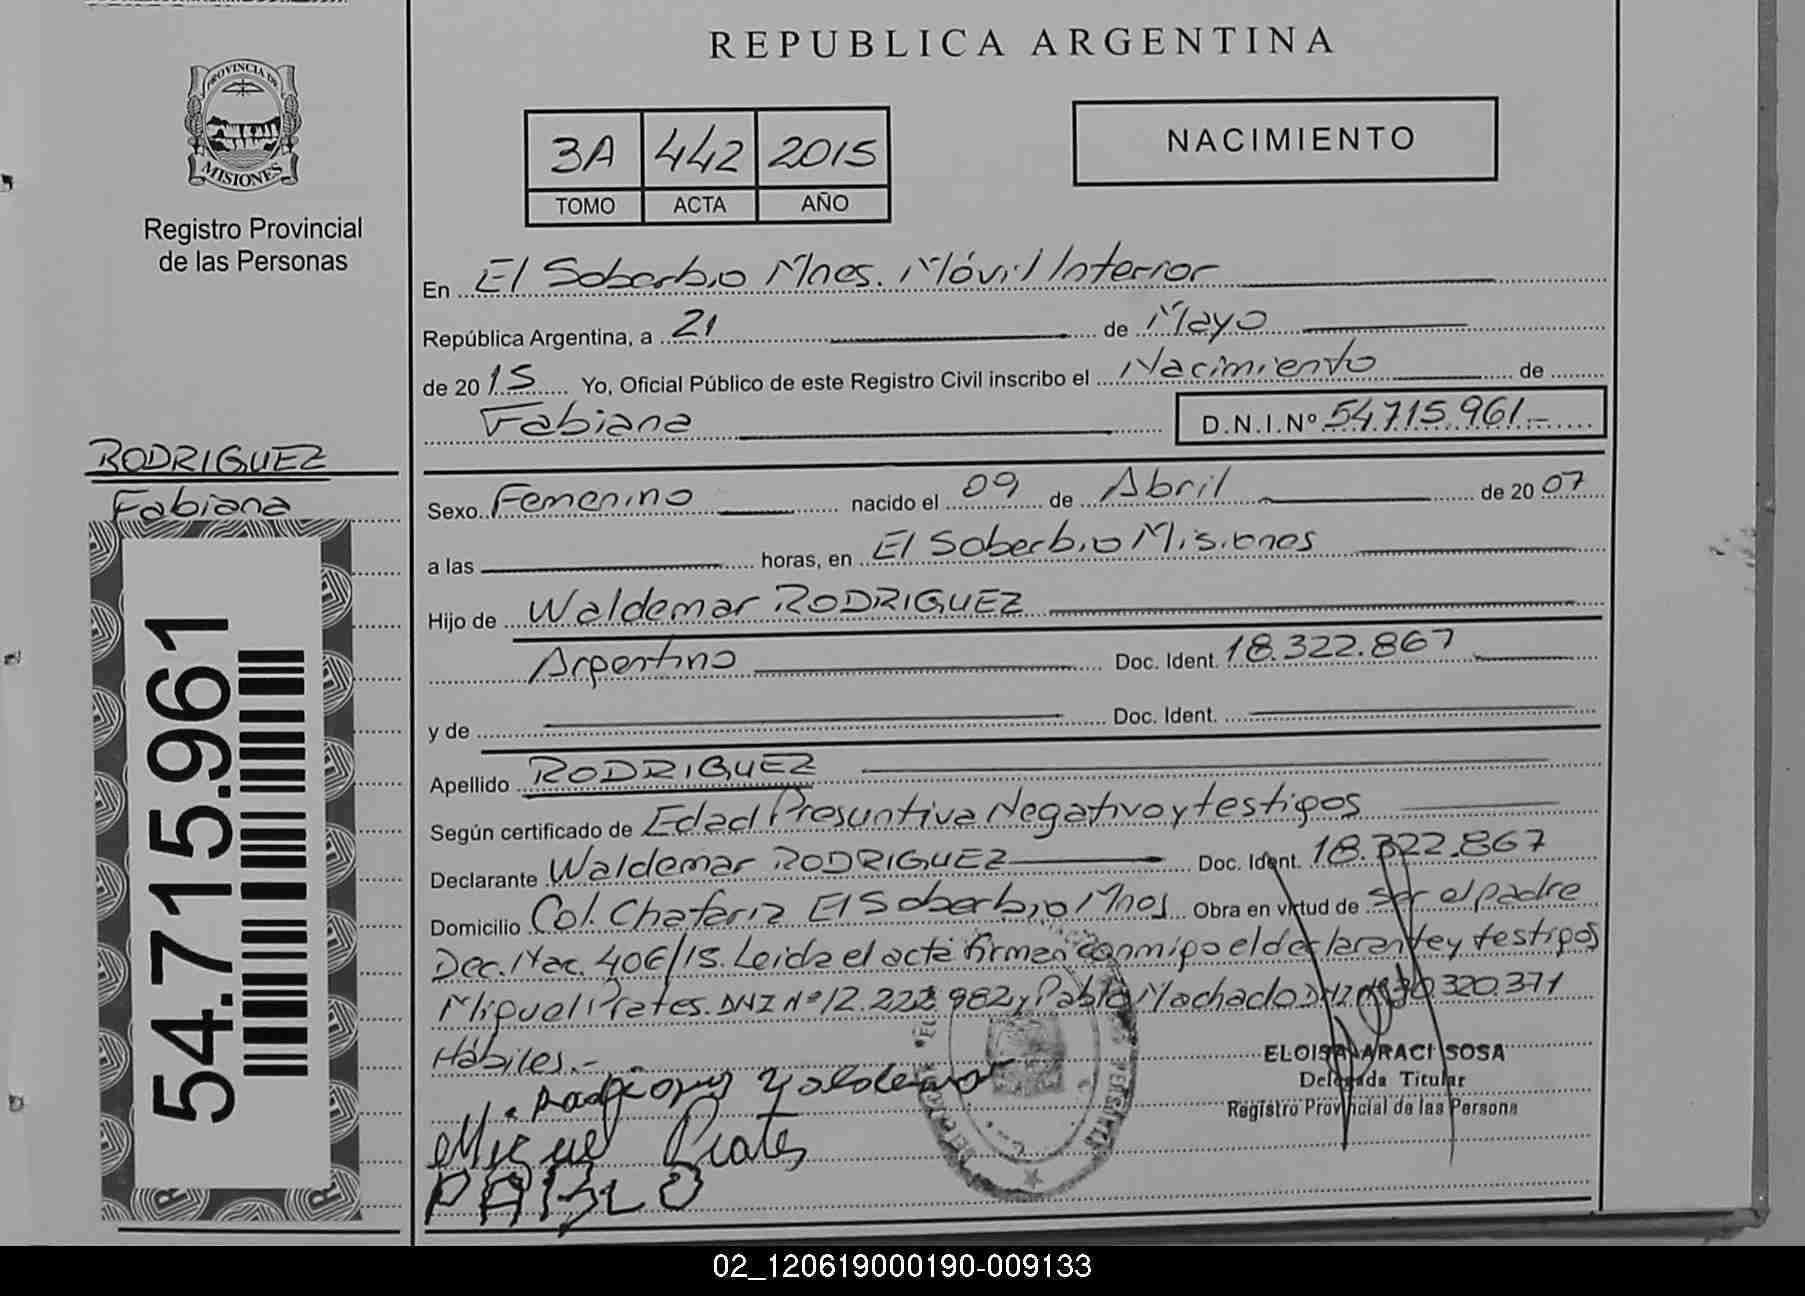 REPUBLICA ARGENTINA
PROVINCIA DE
MISIONES
Registro Provincial
de las Personas
3A 442 2015
TOMO ACTA AÑO
NACIMIENTO
En El Soberbio Mnes. Móvil Interior
República Argentina, a 21 de Mayo
de 2015 Yo, Oficial Público de este Registro Civil inscribo el Nacimiento de
Fabiana D.N.I.Nº 54.715.961.-
RODRIGUEZ
Fabiana
54.715.961
Sexo Femenino nacido el 09 de Abril de 2007
a las horas, en El Soberbio Misiones
Hijo de Waldemar RODRIGUEZ
Argentino Doc. Ident. 18.322.867
y de Doc. Ident.
Apellido RODRIGUEZ
Según certificado de Edad Presuntiva Negativo y testigos
Declarante Waldemar RODRIGUEZ Doc. Ident. 18.322.867
Domicilio Col. Chafariz El Soberbio Mnes Obra en virtud de ser el padre
Dec. Nac. 406/15. Leida el acta firman conmigo el declarante y testigos
Miguel Prates. DNI Nº 12.222.982 y Pablo Machado DNI Nº 30.320.371
Hábiles.-
Miguel Prates
PABLO
ELOISA ARACI SOSA
Delegada Titular
Registro Provincial de las Persona
02_120619000190-009133